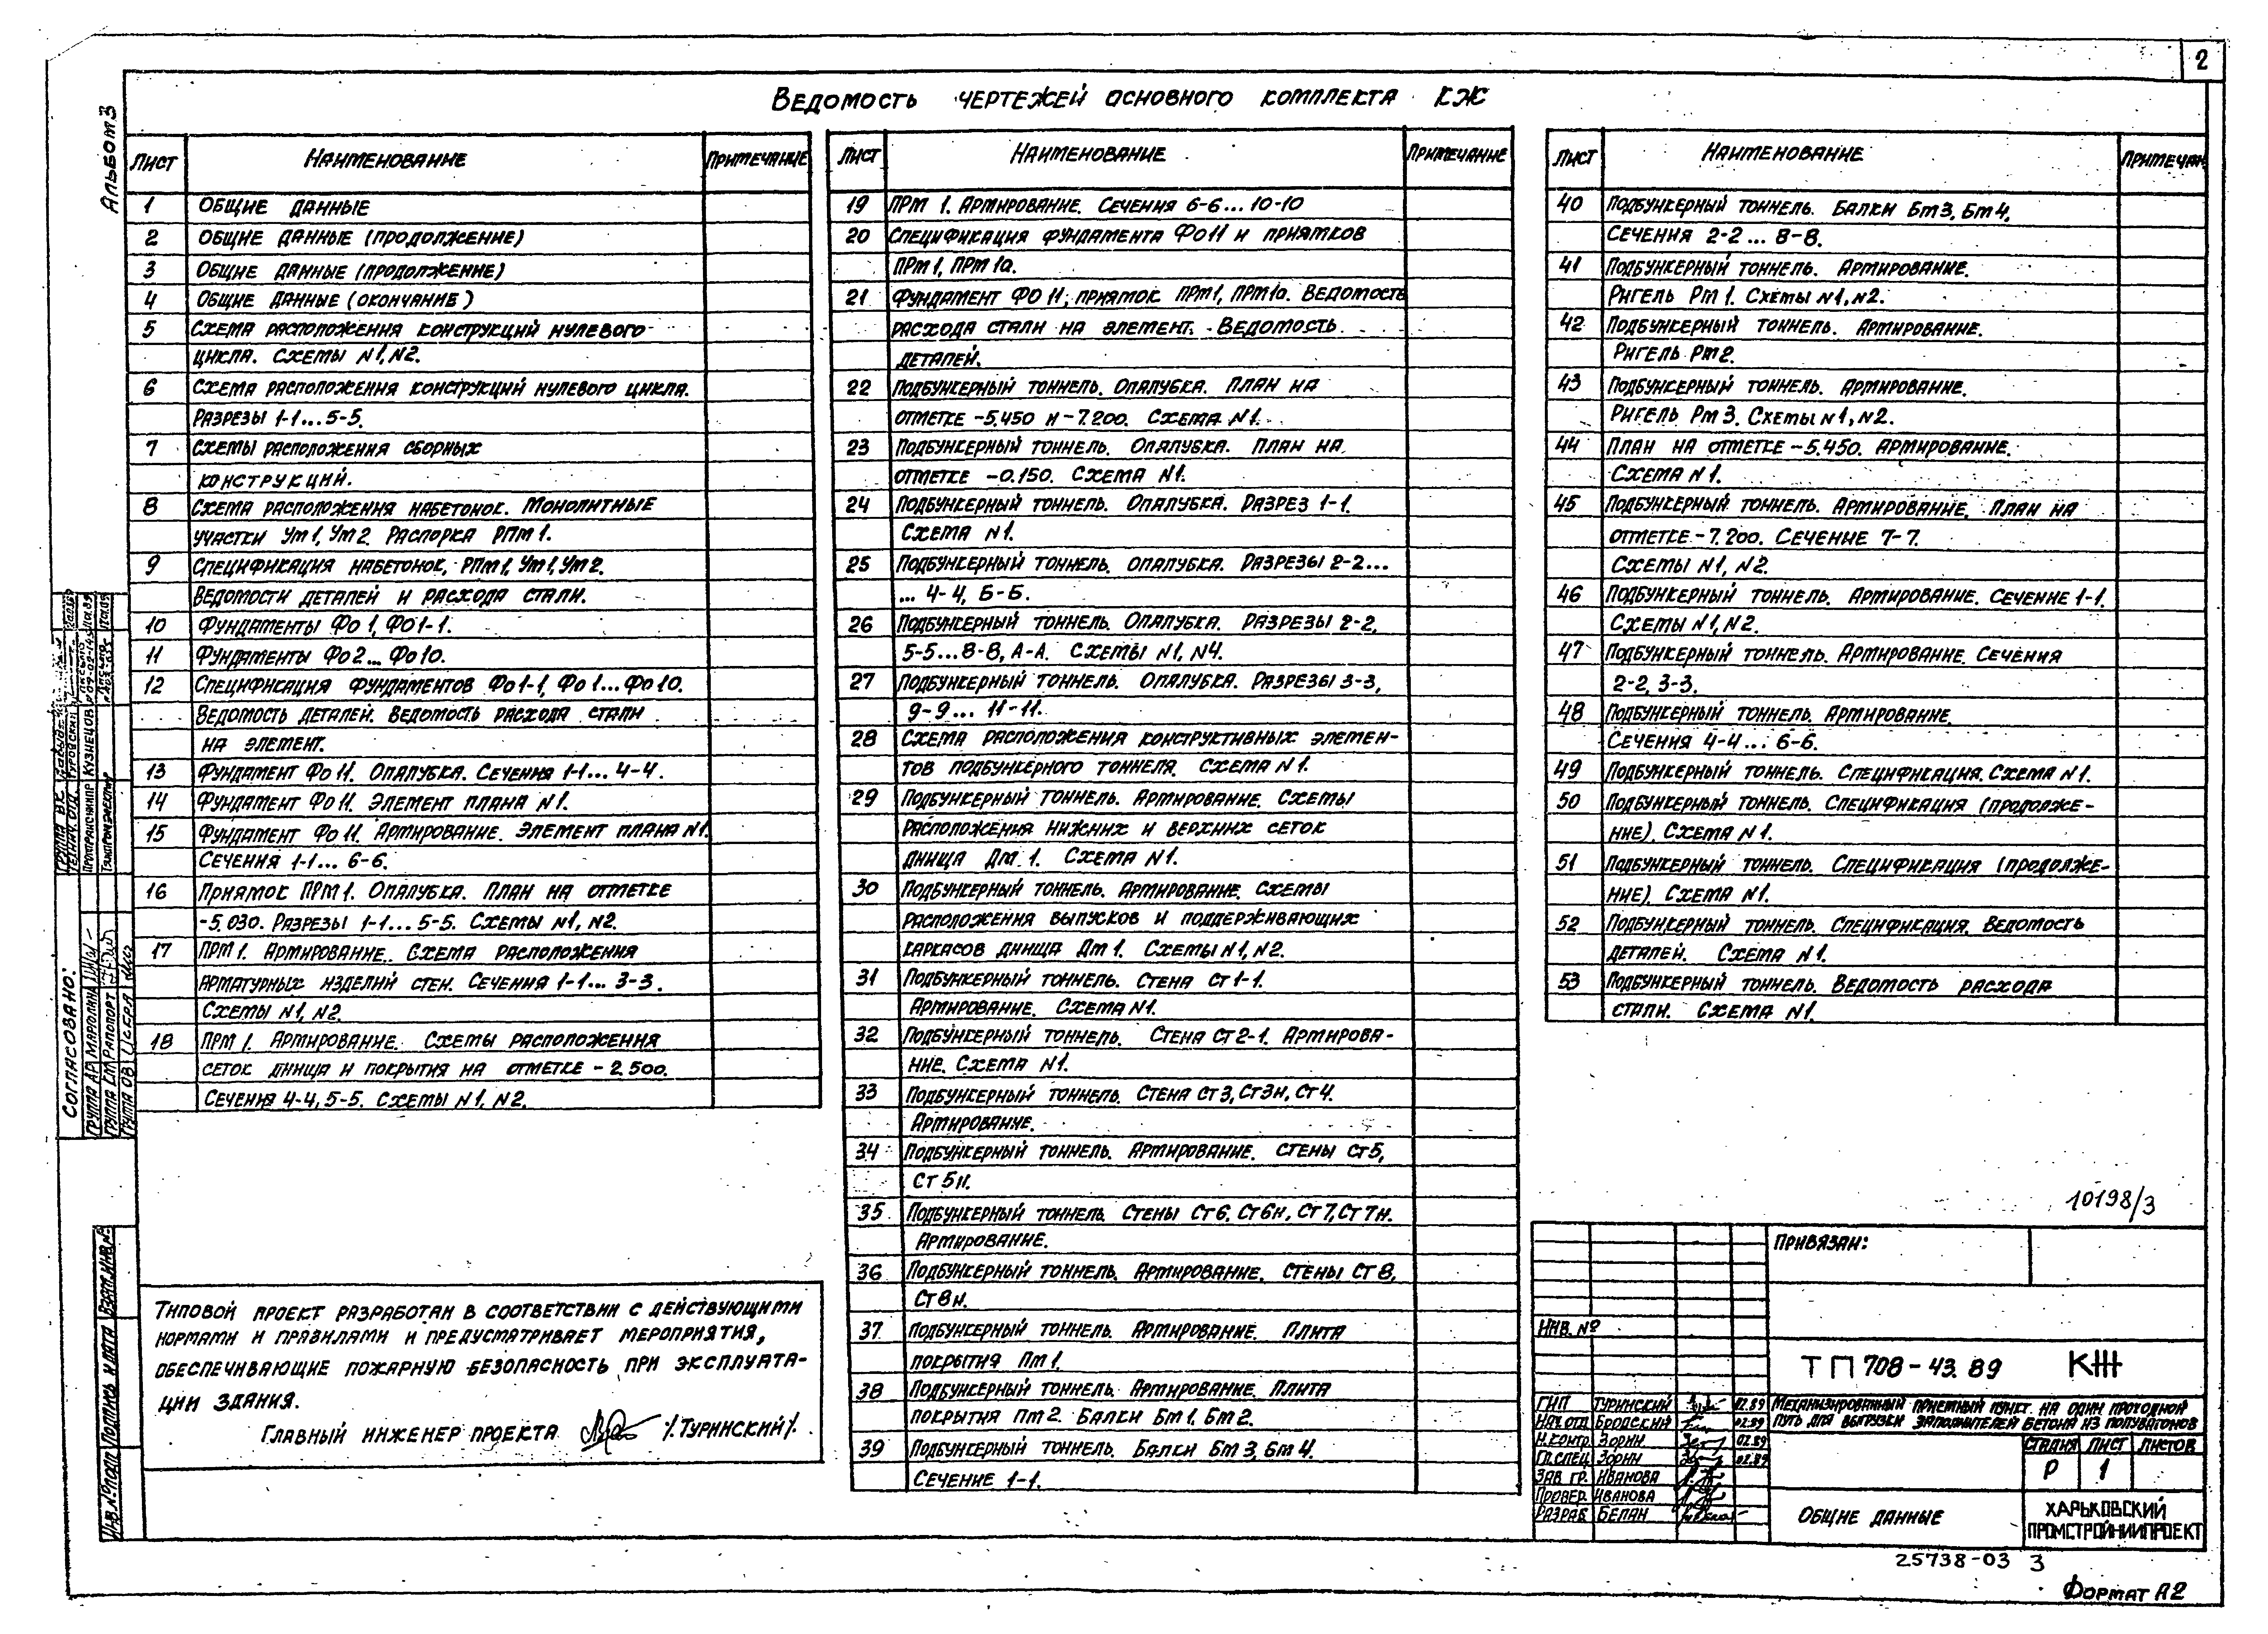 2
Альбом 3
Ведомость чертежей основного комплекта КЖ
Лист Наименование Примечание
1 Общие данные
2 Общие данные (продолжение)
3 Общие данные (продолжение)
4 Общие данные (окончание)
5 Схема расположения конструкций нулевого
цикла. Схемы N1, N2.
6 Схема расположения конструкций нулевого цикла.
Разрезы 1-1...5-5.
7 Схемы расположения сборных
конструкций.
8 Схема расположения набетонок. Монолитные
участки Ум1, Ум2. Распорка РПм1.
9 Спецификация набетонок, РПм1, Ум1, Ум2.
Ведомости деталей и расхода стали.
10 Фундаменты Фо1, Фо1-1.
11 Фундаменты Фо2... Фо10.
12 Спецификация фундаментов Фо1-1, Фо1...Фо10.
Ведомость деталей. Ведомость расхода стали
на элемент.
13 Фундамент Фо11. Опалубка. Сечения 1-1...4-4.
14 Фундамент Фо11. Элемент плана N1.
15 Фундамент Фо11. Армирование. Элемент плана N1.
Сечения 1-1...6-6.
16 Приямок ПРм1. Опалубка. План на отметке
-5.030. Разрезы 1-1...5-5. Схемы N1, N2.
17 ПРм1. Армирование. Схема расположения
арматурных изделий стен. Сечения 1-1...3-3.
Схемы N1, N2.
18 ПРм1. Армирование. Схемы расположения
сеток днища и покрытия на отметке -2.500.
Сечения 4-4, 5-5. Схемы N1, N2.
Лист Наименование Примечание
19 ПРм 1. Армирование. Сечения 6-6...10-10
20 Спецификация фундамента Фо11 и приямков
ПРм1, ПРм1а.
21 Фундамент Фо 11, приямок ПРм1, ПРм1а. Ведомость
расхода стали на элемент. Ведомость
деталей.
22 Подбункерный тоннель. Опалубка. План на
отметке -5.450 и -7.200. Схема N1.
23 Подбункерный тоннель. Опалубка. План на
отметке -0.150. Схема N1.
24 Подбункерный тоннель. Опалубка. Разрез 1-1.
Схема N1.
25 Подбункерный тоннель. Опалубка. Разрезы 2-2...
... 4-4, Б-Б.
26 Подбункерный тоннель. Опалубка. Разрезы 2-2,
5-5...8-8, А-А. Схемы N1, N4.
27 Подбункерный тоннель. Опалубка. Разрезы 3-3,
9-9... 11-11.
28 Схема расположения конструктивных элемен-
тов подбункерного тоннеля. Схема N1.
29 Подбункерный тоннель. Армирование. Схемы
расположения нижних и верхних сеток
днища Дм 1. Схема N1.
30 Подбункерный тоннель. Армирование. Схемы
расположения выпусков и поддерживающих
каркасов днища Дм 1. Схемы N1, N2.
31 Подбункерный тоннель. Стена Ст1-1.
Армирование. Схема N1.
32 Подбункерный тоннель. Стена Ст2-1. Армирова-
ние. Схема N1.
33 Подбункерный тоннель. Стена Ст3, Ст3н, Ст4.
Армирование.
34 Подбункерный тоннель. Армирование. Стены Ст5,
Ст 5н.
35 Подбункерный тоннель. Стены Ст6, Ст6н, Ст7, Ст7н.
Армирование.
36 Подбункерный тоннель. Армирование. Стены Ст8,
Ст8н.
37 Подбункерный тоннель. Армирование. Плита
покрытия Пм1.
38 Подбункерный тоннель. Армирование. Плита
покрытия Пм2. Балки Бм1, Бм2.
39 Подбункерный тоннель. Балки Бм3, Бм4.
Сечение 1-1.
Лист Наименование Примечан
40 Подбункерный тоннель. Балки Бм3, Бм4,
Сечения 2-2...8-8.
41 Подбункерный тоннель. Армирование.
Ригель Рм1. Схемы N1, N2.
42 Подбункерный тоннель. Армирование.
Ригель Рм2.
43 Подбункерный тоннель. Армирование.
Ригель Рм3. Схемы N1, N2.
44 План на отметке -5.450. Армирование.
Схема N1.
45 Подбункерный тоннель. Армирование. План на
отметке -7.200. Сечение 7-7.
Схемы N1, N2.
46 Подбункерный тоннель. Армирование. Сечение 1-1.
Схемы N1, N2.
47 Подбункерный тоннель. Армирование. Сечения
2-2, 3-3.
48 Подбункерный тоннель. Армирование.
Сечения 4-4...6-6.
49 Подбункерный тоннель. Спецификация. Схема N1.
50 Подбункерный тоннель. Спецификация (продолже-
ние). Схема N1.
51 Подбункерный тоннель. Спецификация (продолже-
ние). Схема N1.
52 Подбункерный тоннель. Спецификация. Ведомость
деталей. Схема N1.
53 Подбункерный тоннель. Ведомость расхода
стали. Схема N1.
Типовой проект разработан в соответствии с действующими
нормами и правилами и предусматривает мероприятия,
обеспечивающие пожарную безопасность при эксплуата-
ции здания.
Главный инженер проекта /Туринский/
Согласовано:
Группа АР Маролина
Группа СМ Рапопорт
Группа ОВ
Группа ВК
Технол. отд. Туровский
Протранснии пр Кузнецов
Инв.N°подл Подпись и дата Взам.инв.N°
10198/3
Привязан:
Инв. N°
ТП 708-43.89 КЖ
ГИП Туринский 02.89
Нач.отд. Бродский 02.89
Н.контр. Зорин 02.89
Гл.спец Зорин 02.89
Зав. гр. Иванова
Провер. Иванова
Разраб. Белан
Механизированный приемный пункт на один проходной
путь для выгрузки заполнителей бетона из полувагонов
Стадия Лист Листов
Р 1
Общие данные
Харьковский
Промстройниипроект
25738-03 3
Формат А2